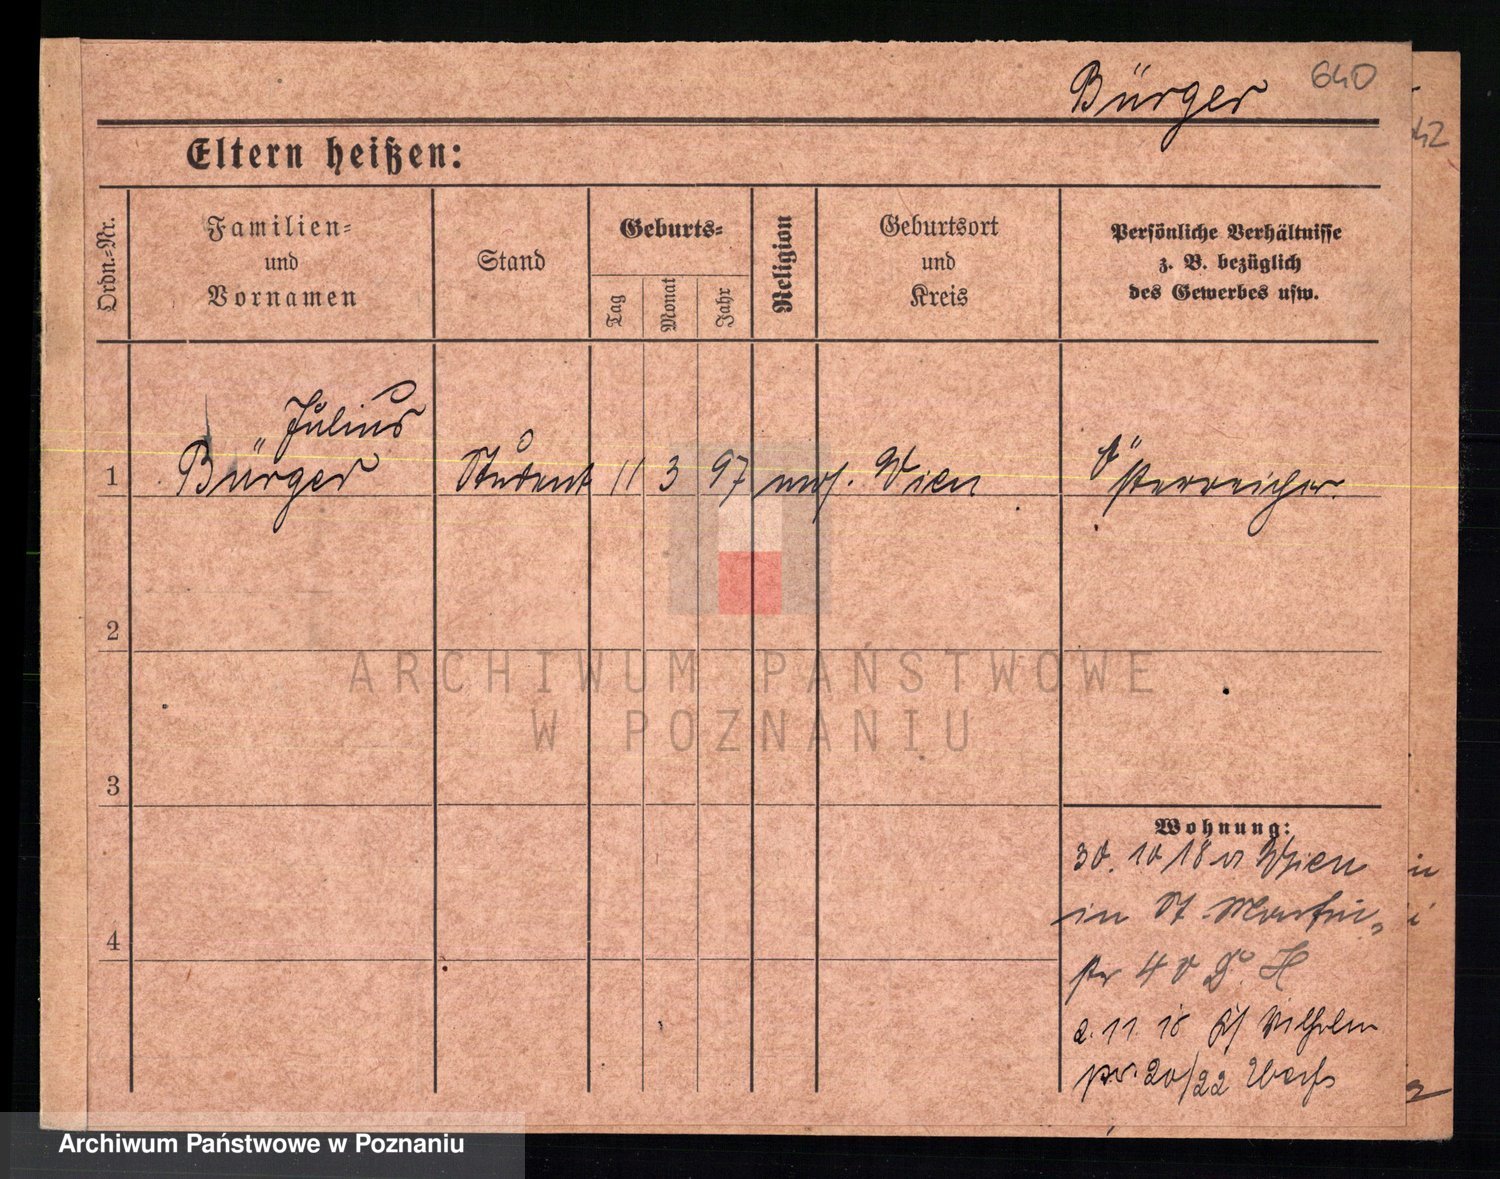 Bürger 640
42
Eltern heißen:
Ordn.-Nr.
Familien-
und
Vornamen
Stand
Geburts-
Tag
Monat
Jahr
Religion
Geburtsort
und
Kreis
Persönliche Verhältnisse
z. B. bezüglich
des Gewerbes usw.
Julius
1 Bürger Student 11 3 97 mos. Wien Österreicher.
2
ARCHIWUM PAŃSTWOWE
W POZNANIU
3
Wohnung:
30. 10 18 v Wien
in St. Martin-
str 40
4
2. 11. 18 Wilhelm
20/22
Archiwum Państwowe w Poznaniu